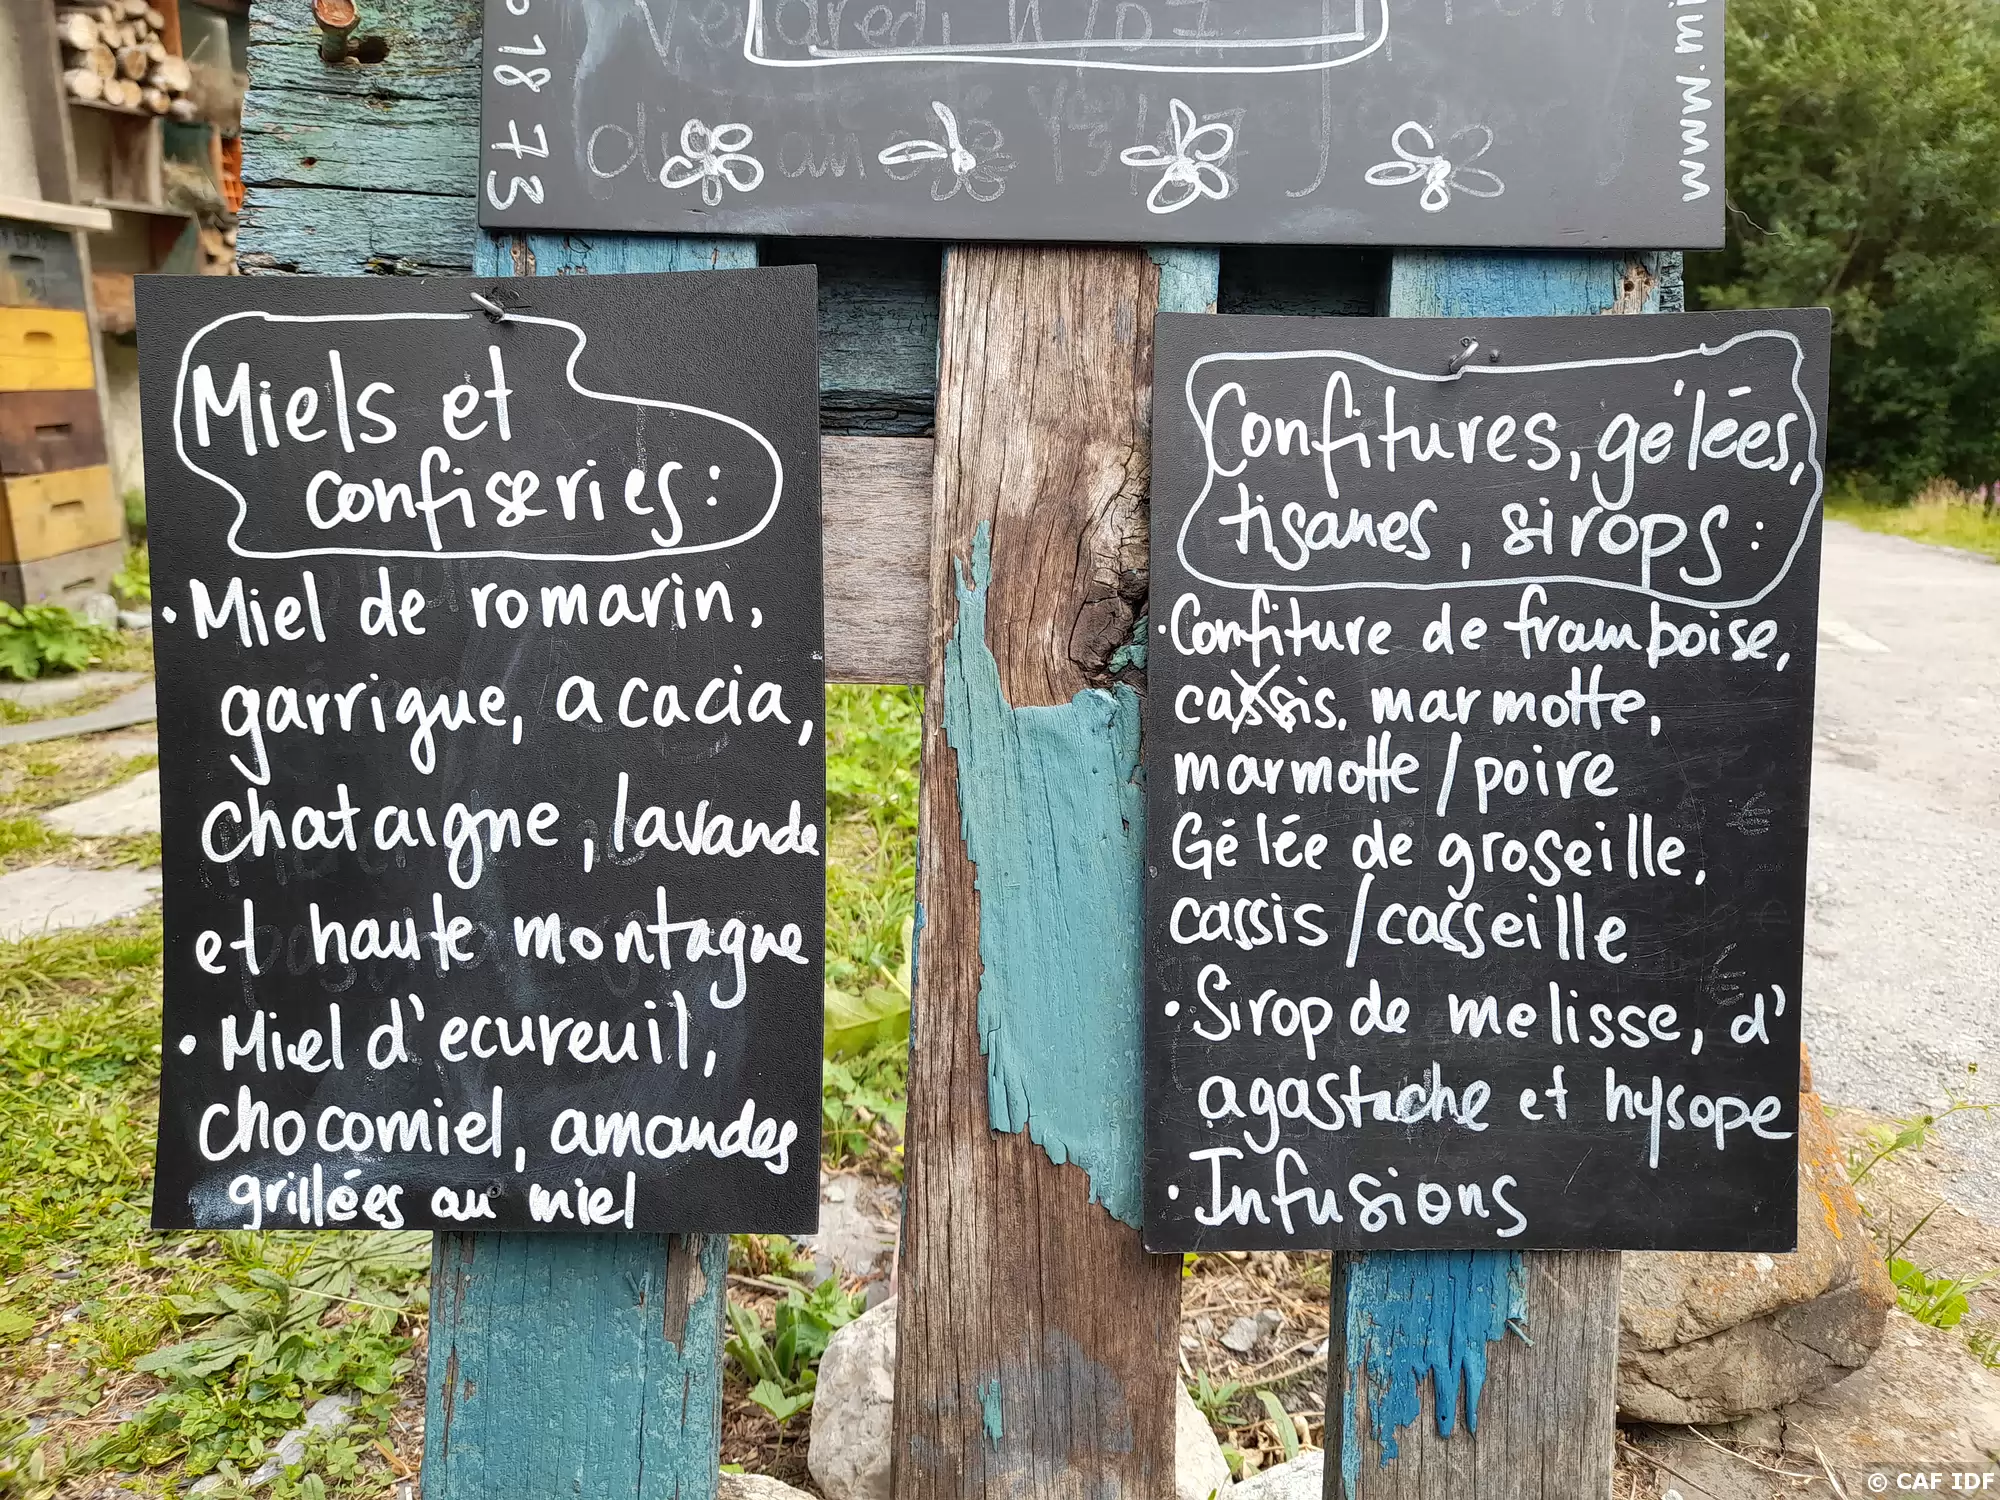 18 73
www.mi
Miels et
confiseries :
• Miel de romarin,
garrigue, acacia,
chataigne, lavande
et haute montagne
• Miel d'ecureuil,
chocomiel, amandes
grillées au miel
Confitures, gélées,
tisanes, sirops :
• Confiture de framboise,
cassis, marmotte,
marmotte / poire
Gélée de groseille,
cassis / casseille
• Sirop de melisse, d'
agastache et hysope
• Infusions
© CAF IDF